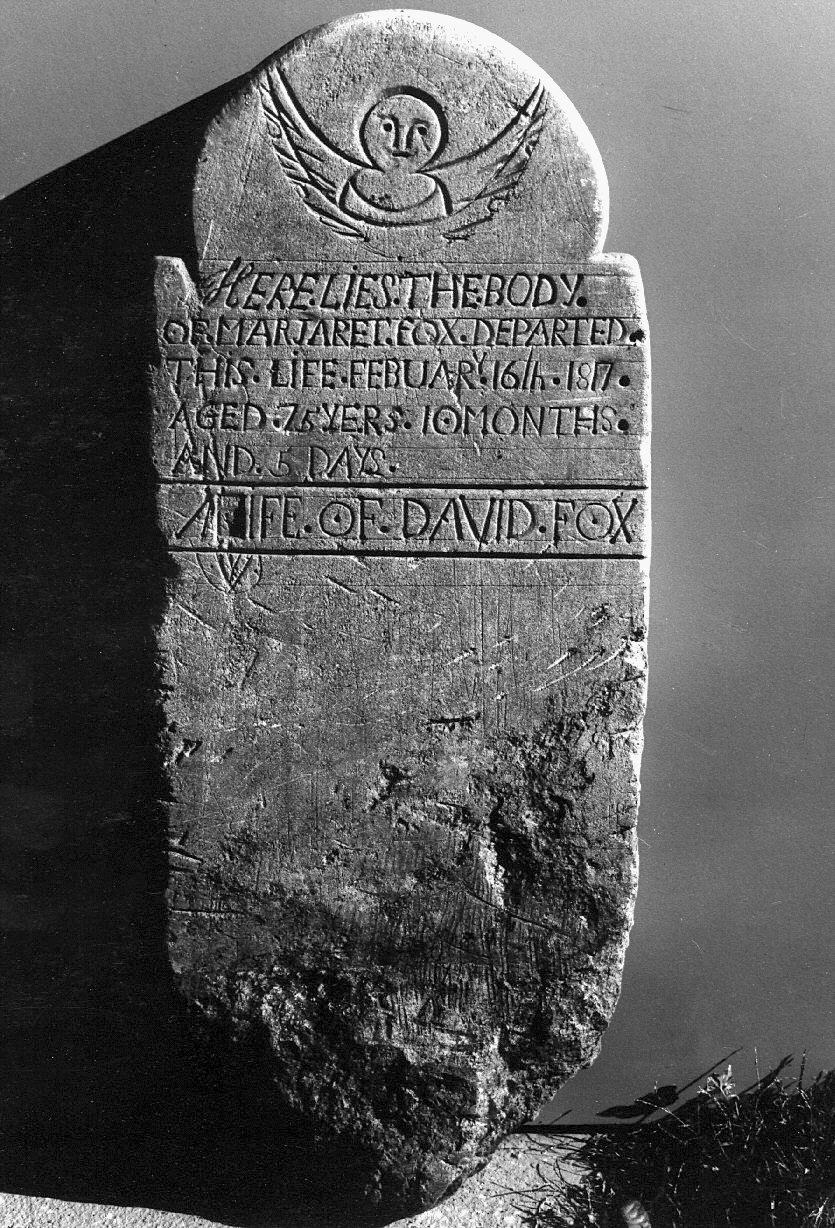 HERE.LIES.THE.BODY.
OF.MARJARET.FOX.DEPARTED.
THIS.LIFE.FEBUARY.16th.1817.
AGED.75YERS.10MONTHS.
AND.5DAYS.
WIFE.OF.DAVID.FOX